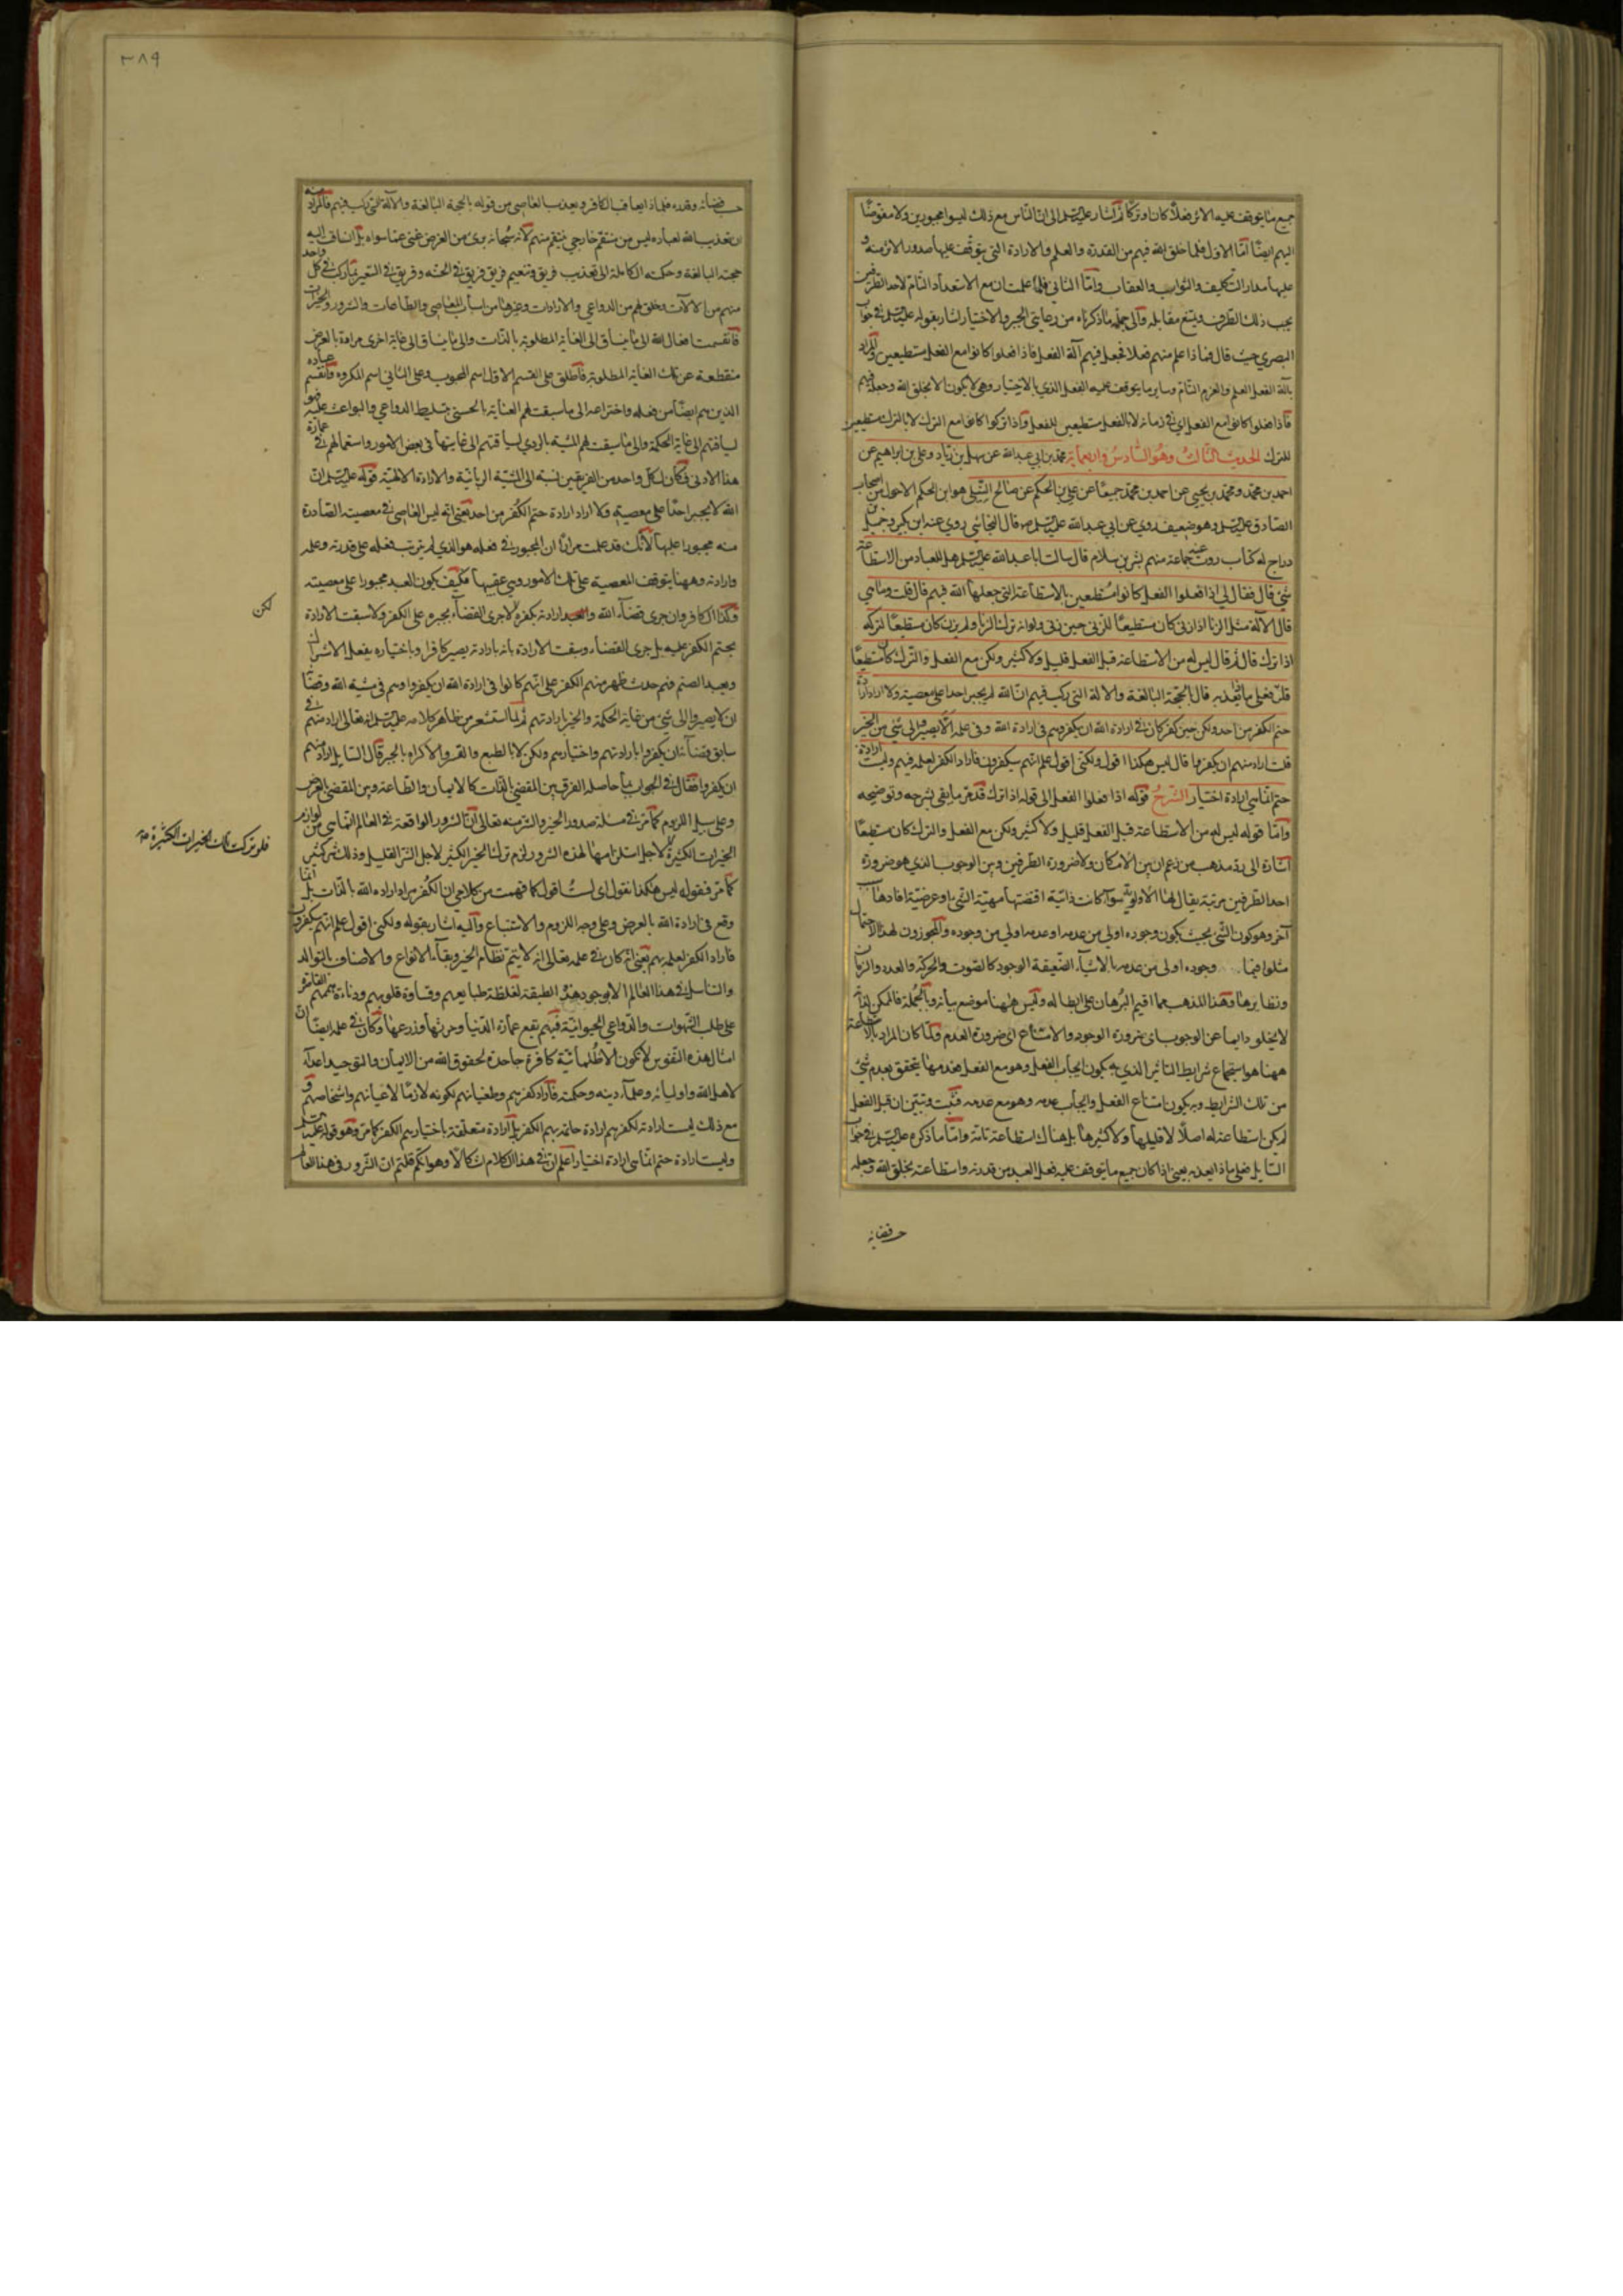 جميع ما يتوقف عليه الاثر فعلاً كان او تركا ثم اشار عليه السلم الى ان الناس مع ذلك ليسوا مجبورين ولا مفوضا
اليهم ايضا اما الاول فلما خلق الله فيهم من القدرة والعلم والارادة التى يتوقف عليها صدور الاثر منه و
عليها مدار التكليف والثواب والعقاب واما الثاني فلما علمت ان مع الاستعداد التام لاحد الطرفين
يجب ذلك الطرف ويمتنع مقابله والى جملة ما ذكرناه من رعايتى الجبر والاختيار اشار بقوله عليه السلم فى جواب
البصري حيث قال فماذا علم منهم فعلا فجعل فيهم آلة الفعل فاذا فعلوا كانوا مع الفعل مستطيعين والمراد
بآلة الفعل العلم والعزم التام وساير ما يتوقف عليه الفعل الذي بالاختيار وهى لا يكون الا بخلق الله وجعله فيهم
فاذا فعلوا كانوا مع الفعل اى فى زمانه لا بالفعل مستطيعين للفعل واذا تركوا كانوا مع الترك لا بالترك مستطيعين
للترك الحديث الثالث وهو السادس واربعمائة محمد بن ابي عبد الله عن سهل بن زياد وعلى بن ابراهيم عن
احمد بن محمد ومحمد بن يحيى عن احمد بن محمد جميعا عن علي بن الحكم عن صالح النيلى هو ابن الحكم الاحول من اصحاب
الصادق عليه السلم وهو ضعيف روى عن ابي عبد الله عليه السلم قال النجاشي روى عنه ابن بكير وجميل بن
دراج له كتاب روت عنه جماعة منهم بشر بن سلام قال سالت ابا عبد الله عليه السلم هل للعباد من الاستطاعة
شئ قال فقال لى اذا فعلوا الفعل كانوا مستطيعين بالاستطاعة التى جعلها الله فيهم قال قلت وما هي
قال الآلة مثل الزنا اذا زنى كان مستطيعا للزنى حين زنى ولو انه ترك الزنا ولم يزن كان مستطيعا لتركه
اذا ترك قال ثم قال ليس له من الاستطاعة قبل الفعل قليل ولا كثير ولكن مع الفعل والترك كان مستطيعا
قلت فعلى ماذا يعذبه قال بالحجة البالغة والالة التى ركب فيهم ان الله لم يجبر احدا على معصيته ولا اراد ارادة
حتم الكفر من احد ولكن حين كفر كان فى ارادة الله ان يكفر وهم فى ارادة الله وفى علمه الا يصيروا الى شئ من الخير
قلت اراد منهم ان يكفروا قال ليس هكذا اقول ولكنى اقول علم انهم سيكفرون فاراد الكفر لعلمه فيهم وليست ارادة
حتم انما هي ارادة اختيار الشرح قوله اذا فعلوا الفعل الى قوله اذا ترك قد مر ما يفى بشرحه وتوضيحه
واما قوله ليس له من الاستطاعة قبل الفعل قليل ولا كثير ولكن مع الفعل والترك كان مستطيعا
اشارة الى رد مذهب من زعم ان بين الامكان ولا ضرورة الطرفين وبين الوجوب الذي هو ضرورة
احد الطرفين مرتبة يقال لها الاولوية سواء كانت ذاتية اقتضتها مهية الشئ او عرضية افادها سبب
آخر وهو كون الشئ بحيث يكون وجوده اولى من عدمه او عدمه اولى من وجوده والمجوزون لهذا الاحتمال
مثلوا فيما وجوده اولى من عدمه بالاشياء الضعيفة الوجود كالصوت والحركة والعدد والزمان
ونظايرها وهذا المذهب مما اقيم البرهان على ابطاله وليس ههنا موضع بيانه وبالجملة فالممكن
لا يخلو دايما عن الوجوب اى ضرورة الوجود والامتناع اى ضرورة العدم ولما كان المراد بالاستطاعة
ههنا هو استجماع شرايط التاثير الذي به يكون ايجاب الفعل وهو مع الفعل فعدمها يتحقق بعدم شئ
من تلك الشرايط وبه يكون امتناع الفعل وايجاب عدمه وهو مع عدمه فثبت وتبين ان قبل الفعل
لم يكن استطاعة له اصلا لا قليلها ولا كثيرها بل هناك استطاعة تامة واما ما ذكره عليه السلم فى جواب
السايل فعلى ماذا يعذبه يعنى اذا كان جميع ما يتوقف عليه فعل العبد من قدرته واستطاعته بخلق الله وجعله
٣٨٩
حسب قضائه وقدره فلماذا يعاقب الكافر ويعذب العاصى من قوله بالحجة البالغة والآلة التى ركب فيهم فالمراد منه
ان تعذيب الله لعباده ليس من منتقم خارجي ينتقم منهم لانه سبحانه برئ من الغرض غنى عما سواه بل انساق اليه
حجته البالغة وحكمته الكاملة الى تعذيب فريق وتنعيم فريق فريق فى الجنة وفريق فى السعير بما ركب فى كل واحد
منهم من الالات وخلق لهم من الدواعي والارادات وغيرها من اسباب المعاصى والطاعات والشرور والخيرات
فانقسمت افعال الله الى ما ينساق الى الغاية المطلوبة بالذات والى ما ينساق الى غاية اخرى مرادة بالعرض
منقطعة عن تلك الغاية المطلوبة فاطلق على القسم الاول اسم المحبوب وعلى الثانى اسم المكروه وانقسم عباده
الذين هم ايضا من فعله واختراعه الى ما سبقت لهم العناية بالحسنى بتسليط الدواعي والبواعث عليهم
لسياقتهم الى غاية الحكمة والى ما سبقت لهم المشية بالردى لسياقتهم الى غايتها فى بعض الامور واستعمالهم فى عمارة
هذا الادنى فكان لكل واحد من الفريقين نسبة الى المشية الربانية والارادة الالهية قوله عليه السلم ان
الله لا يجبر احدا على معصيته ولا اراد ارادة حتم الكفر من احد يعنى انه ليس العاصى فى معصيته الصادرة
منه مجبورا عليها لانك قد علمت مرارا ان المجبور فى فعله هو الذي لم يترتب فعله على قدرته وعلمه
وارادته وههنا يتوقف المعصية على تلك الامور وهى عقيبها فكيف يكون العبد مجبورا على معصيته
وكذا الكافر وان جرى قضاء الله ارادته بكفره لا جرى القضاء بجبره على الكفر ولا سبقت الارادة
لكن
بحتم الكفر عليه بل جرى القضاء وسبقت الارادة بانه بارادته يصير كافرا وباختياره يفعل الاشراك
ويعبد الصنم فهم حيث ظهر منهم الكفر على انهم كانوا فى ارادة الله ان يكفروا وهم فى مشية الله وقضائه
ان لا يصيروا الى شئ من غاية الحكمة والخير ارادتهم ثم لما استشعر من ظاهر كلامه عليه السلم انه تعالى اراد منهم فى
سابق قضائه ان يكفروا بارادتهم واختيارهم ولكن لا بالطبع والقسر والاكراه بالجبر قال السايل اراد منهم
ان يكفروا فقال فى الجواب ما حاصله الفرق بين المقضي بالذات كالايمان والطاعة وبين المقضى بالعرض
وعلى سبيل اللزوم كما مر فى مسئلة صدور الخير والشر منه تعالى ان الشرور الواقعة فى العالم انما هى من لوازم
الخيرات الكثيرة لاجل استلزامها لهذه الشرور لزم ترك الخير الكثير لاجل الشر القليل وذلك شر كثير
فلو تركت تلك الخيرات الكثيرة
كما مر فقوله ليس هكذا نقول اى لست اقول كما فهمت من كلامى ان الكفر مراد ارادة الله بالذات بل انما
وقع فى ارادة الله بالعرض وعلى وجه اللزوم والاستتباع واليه اشار بقوله ولكنى اقول علم انهم سيكفرون
فاراد الكفر لعلمه بهم يعنى انه كان فى علمه تعالى انه لا يتم نظام الخير وبقاء الانواع والاصناف بالتوالد
والتناسل فى هذا العالم الا بوجود هذه الطبقة لغلظة طبايعهم وقساوة قلوبهم ودناءة هممهم
على طلب الشهوات والدواعي الحيوانية فبهم يقع عمارة الدنيا وحرثها وزرعها وكان فى علمه ايضا ان
امثال هذه النفوس لا تكون الا ظلمانية كافرة جاحدة لحقوق الله من الايمان والتوحيد اعداء
لاهل الله واوليائه وعلماء دينه وحكمته فاراد كفرهم وطغيانهم لكونه لازما لاعيانهم واشخاصهم و
مع ذلك ليست ارادته لكفرهم ارادة حاتمة بهم الكفر بل ارادة متعلقة باختيارهم الكفر كما مر وهو قوله عليه السلم
وليست ارادة حتم انما هى ارادة اختيار اعلم ان فى هذا الكلام اشكالا وهو انكم قلتم ان الشرور فى هذا العالم